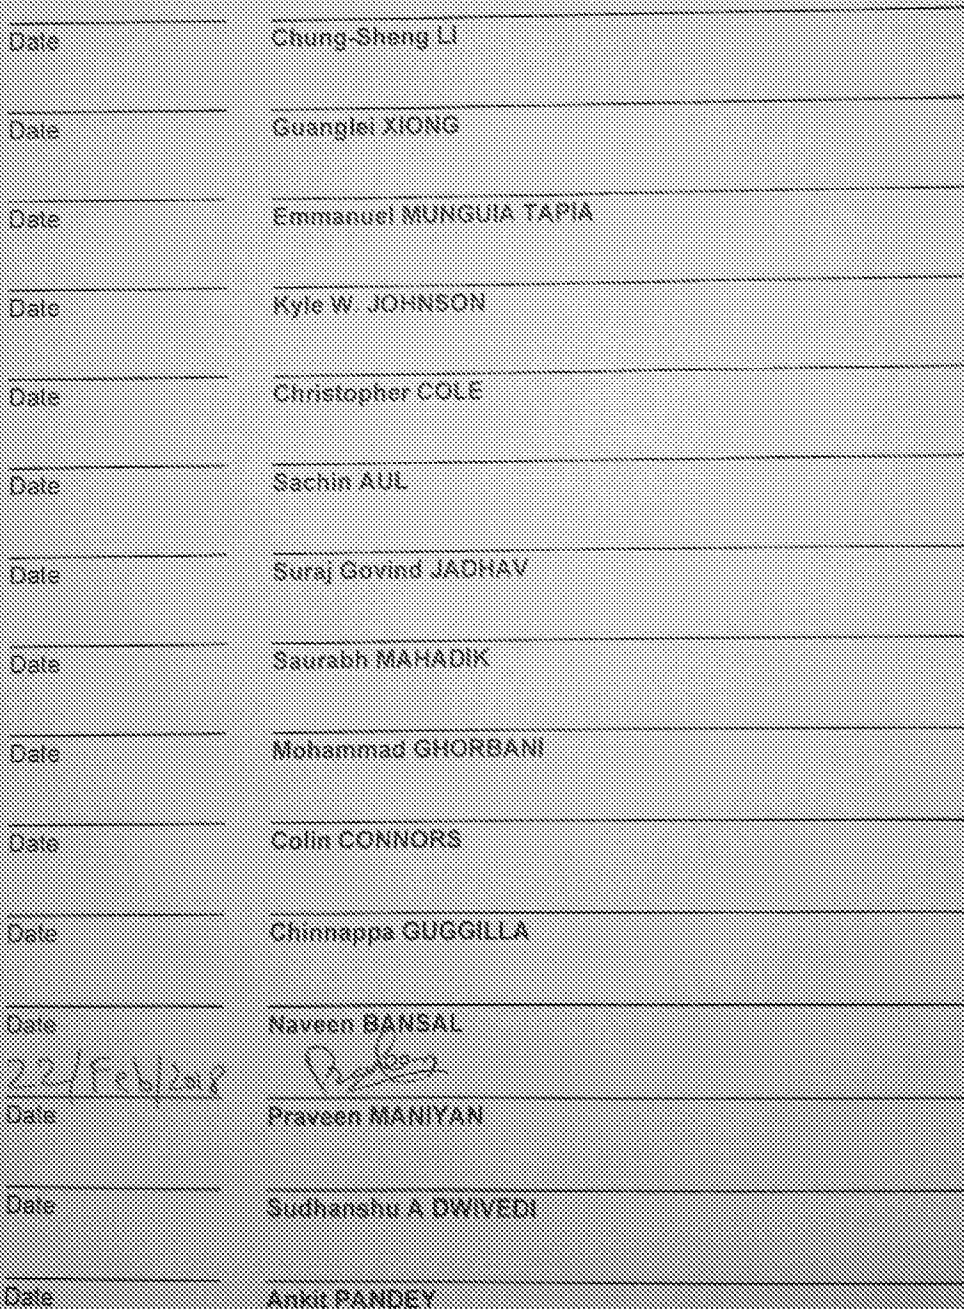 Date Chung-Sheng LI
Date Guanglei XIONG
Date Emmanuel MUNGUIA TAPIA
Date Kyle W. JOHNSON
Date Christopher COLE
Date Sachin AUL
Date Suraj Govind JADHAV
Date Saurabh MAHADIK
Date Mohammad GHORBANI
Date Colin CONNORS
Date Chinnappa GUGGILLA
Date Naveen BANSAL
22/Feb/2018
Date Praveen MANIYAN
Date Sudhanshu A DWIVEDI
Date Ankit PANDEY